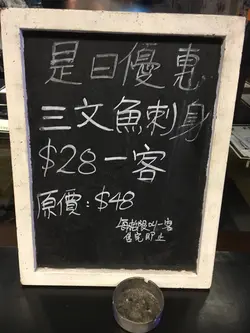 是日優惠
三文魚刺身
$28一客
原價：$48
每枱限叫一客
售完即止